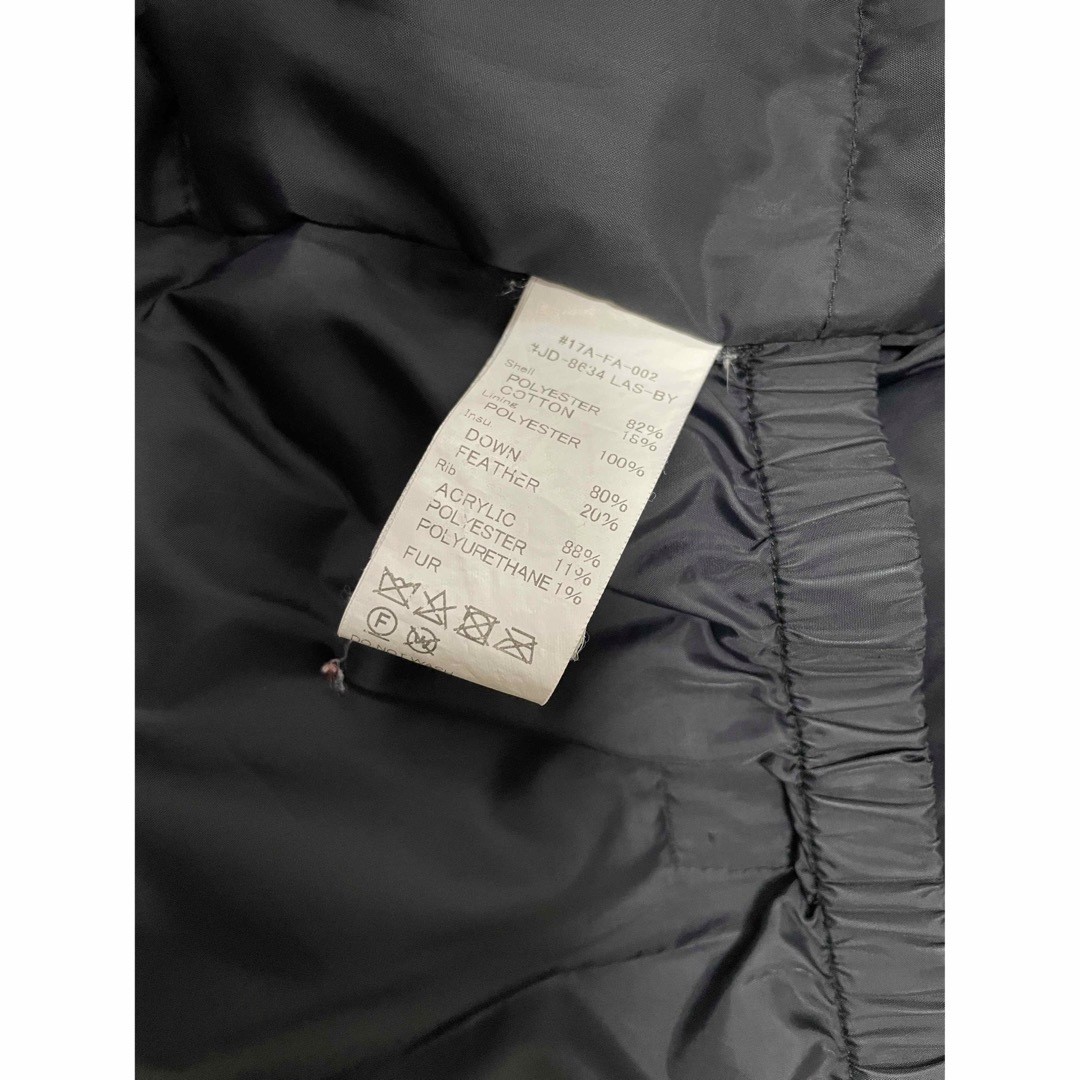 #17A-FA-002
#JD-8634 LAS-BY
Shell
POLYESTER 82%
COTTON 18%
Lining
POLYESTER 100%
Insu
DOWN 80%
FEATHER 20%
Rib
ACRYLIC 88%
POLYESTER 11%
POLYURETHANE 1%
FUR
F